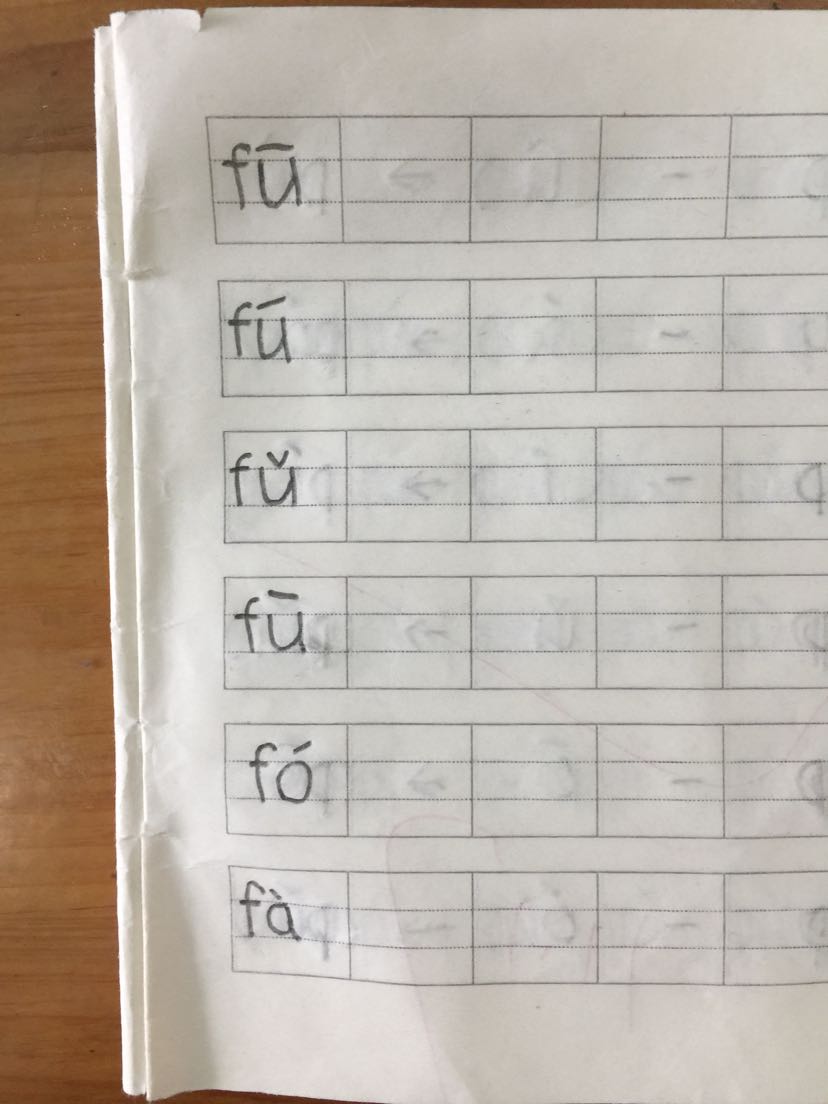 fū
fú
fǔ
fū
fó
fà